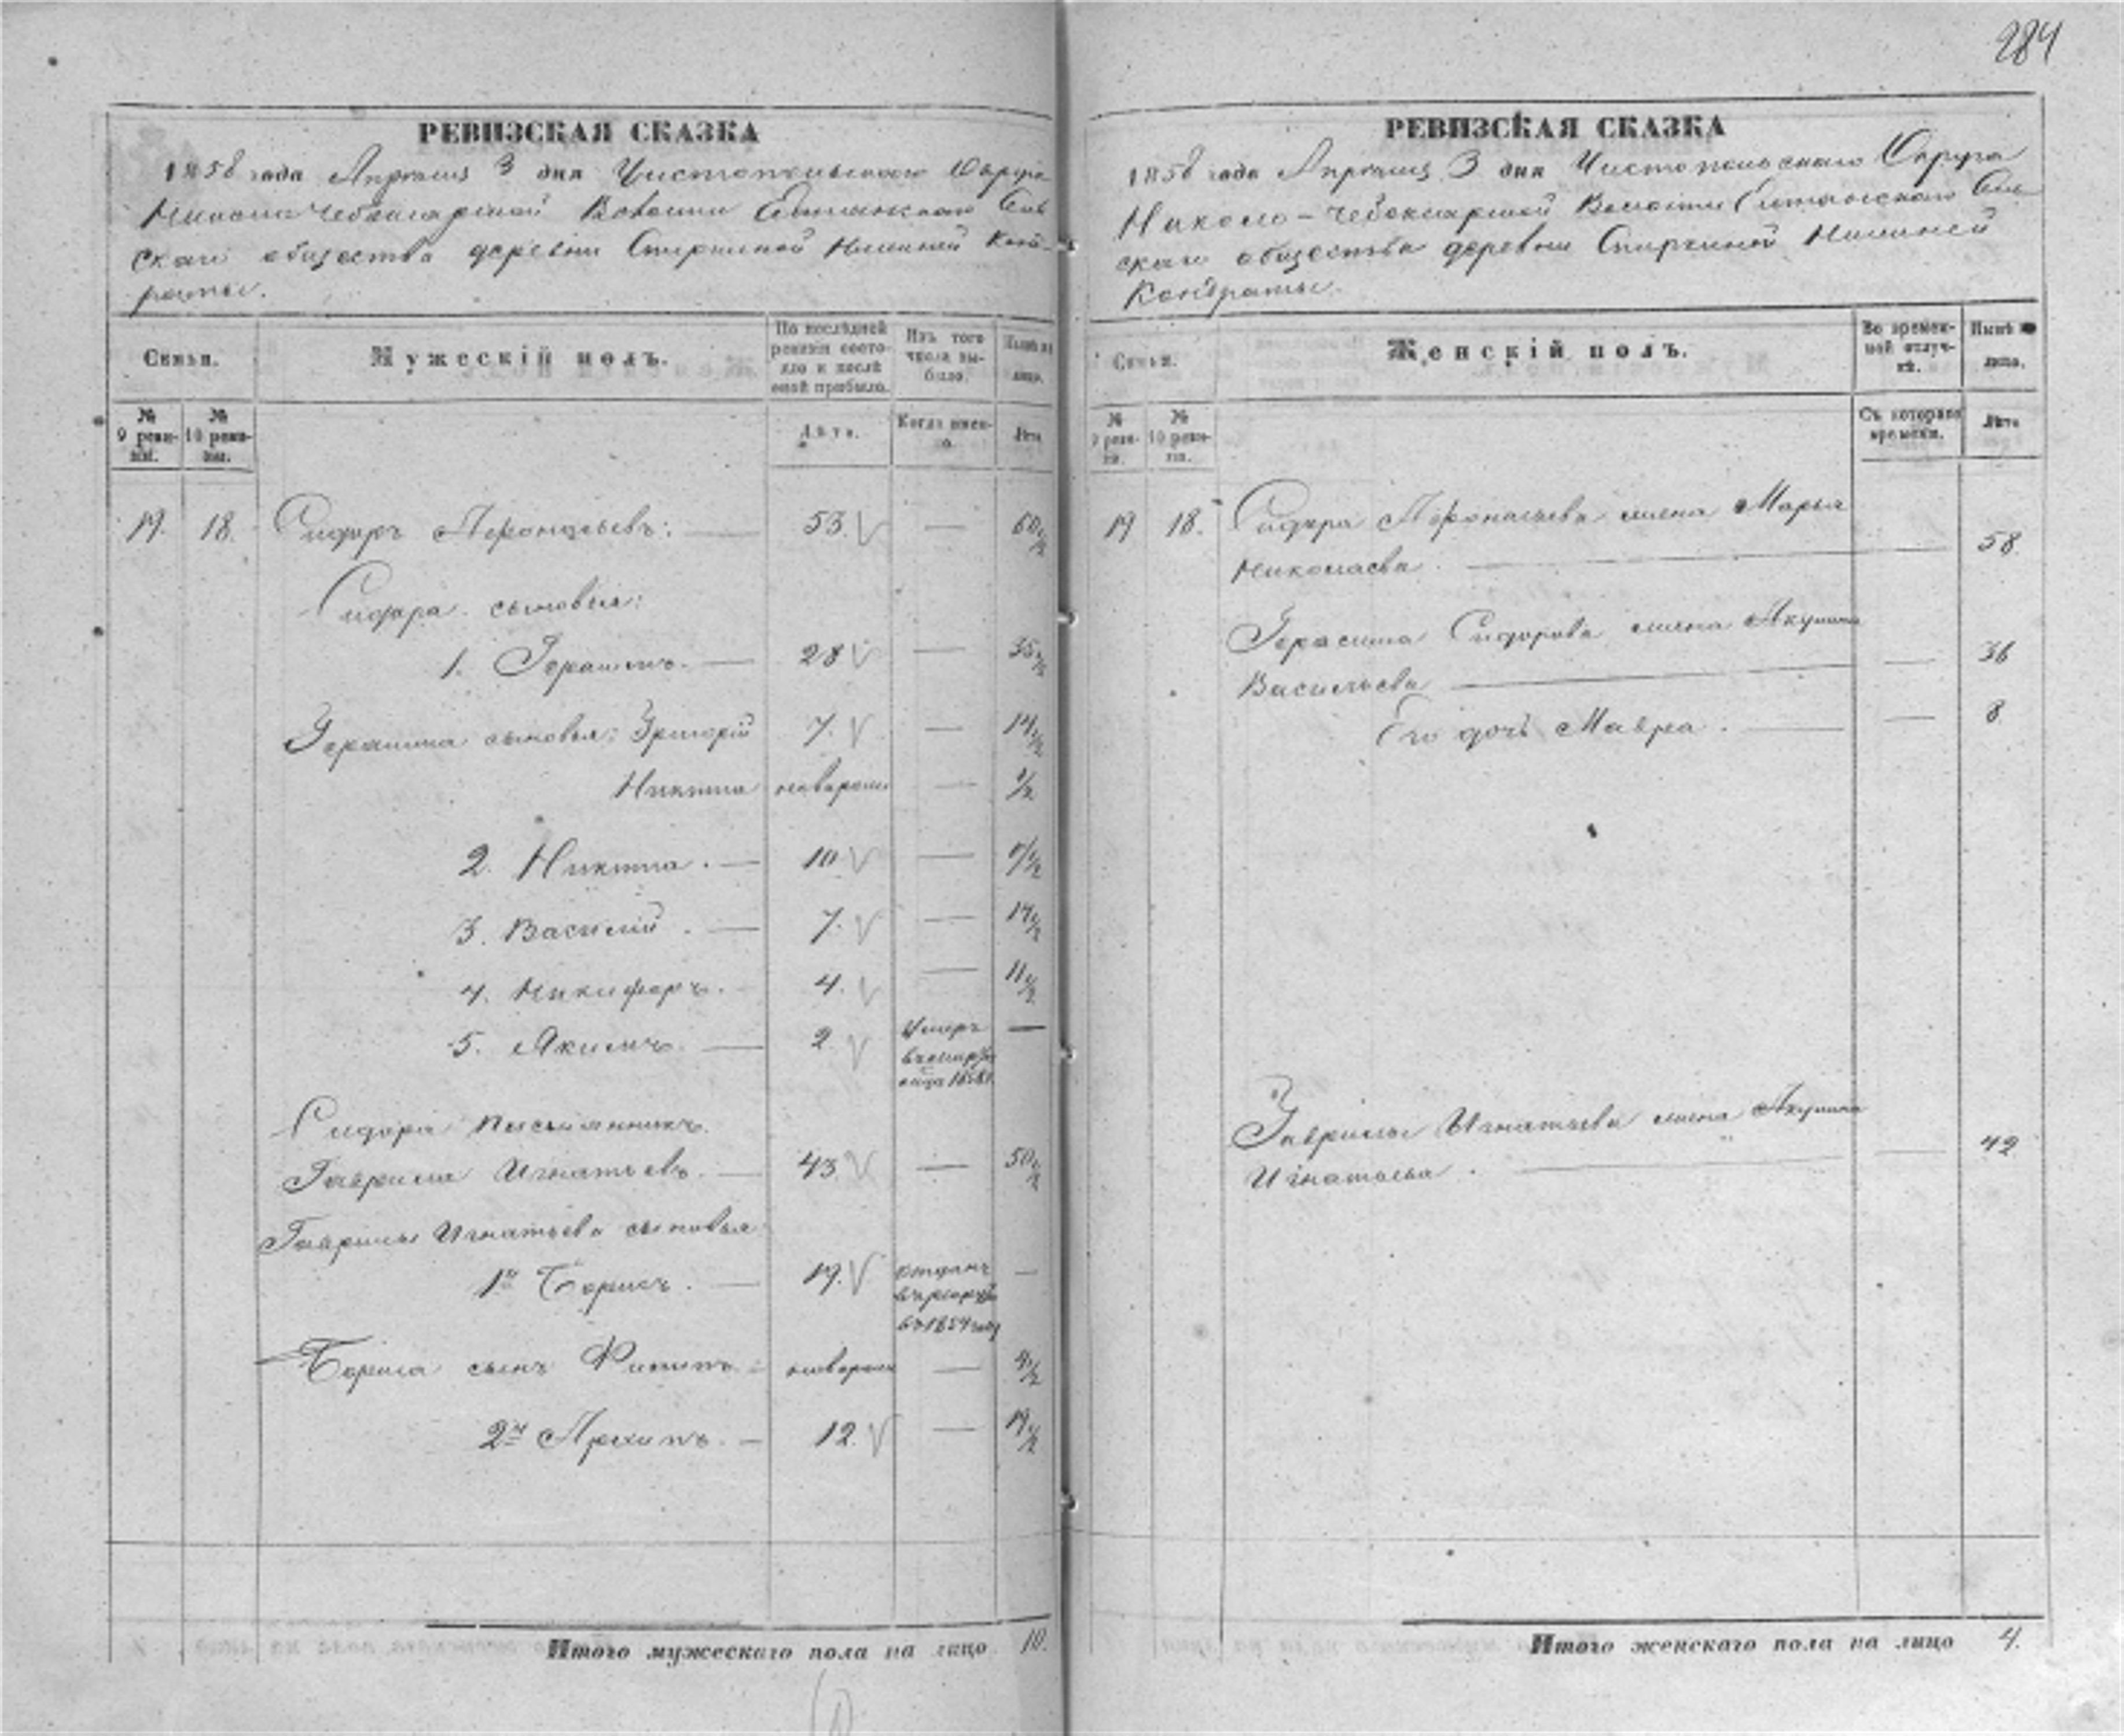 284
РЕВИЗСКАЯ СКАЗКА
1858 года Апреля 3 дня Чистопольского Округа
Николо Чебоксарской Волости Сель
скаго общества деревни Спиркиной Нижней Кон-
драты.
Семьи.
Мужескій полъ.
По послѣдней ревизіи состояло и послѣ оной прибыло.
Изъ того числа выбыло.
Нынѣ на лицо.
№ 9 ревизіи.
№ 10 ревизіи.
Лѣта.
Когда именно.
Лѣта
19. 18. Сидоръ Афонасьевъ: 53. — 60 1/2
Сидора сыновья:
1. Герасимъ. 28 — 35 1/2
Герасима сыновья: Григорій 7. — 14 1/2
Никита новорожн — 1/2
2. Никита. 10 — 17 1/2
3. Василій. 7. — 14 1/2
4. Никифоръ. 4. — 11 1/2
5. Якимъ. 2. Умеръ —
Сидора племянникъ
Гаврила Игнатьевъ. 43 — 50 1/2
Гаврилы Игнатьева сыновья
1й Борисъ. 19. отданъ —
въ рекруты
въ 1854 году
Бориса сынъ Филипъ: новорожн — 4 1/2
2й Архипъ. 12. — 19 1/2
Итого мужескаго пола на лицо 10.
РЕВИЗСКАЯ СКАЗКА
1858 года Апреля 3 дня Чистопольскаго Округа
Николо-Чебоксарской Волости Сель
скаго общества деревни Спиркиной Нижней
Кондраты.
Семьи.
Женскій полъ.
Во временной отлучкѣ.
Нынѣ на лицо.
№ 9 ревизіи.
№ 10 ревизіи.
Съ котораго времени.
Лѣта
19 18. Сидора Афонасьева жена Марья
Николаева. — 58.
Герасима Сидорова жена Акулина
Васильева — 36
Его дочь Мавра. — 8.
Гаврилы Игнатьева жена Акулина
Игнатьева. — 42
Итого женскаго пола на лицо 4.